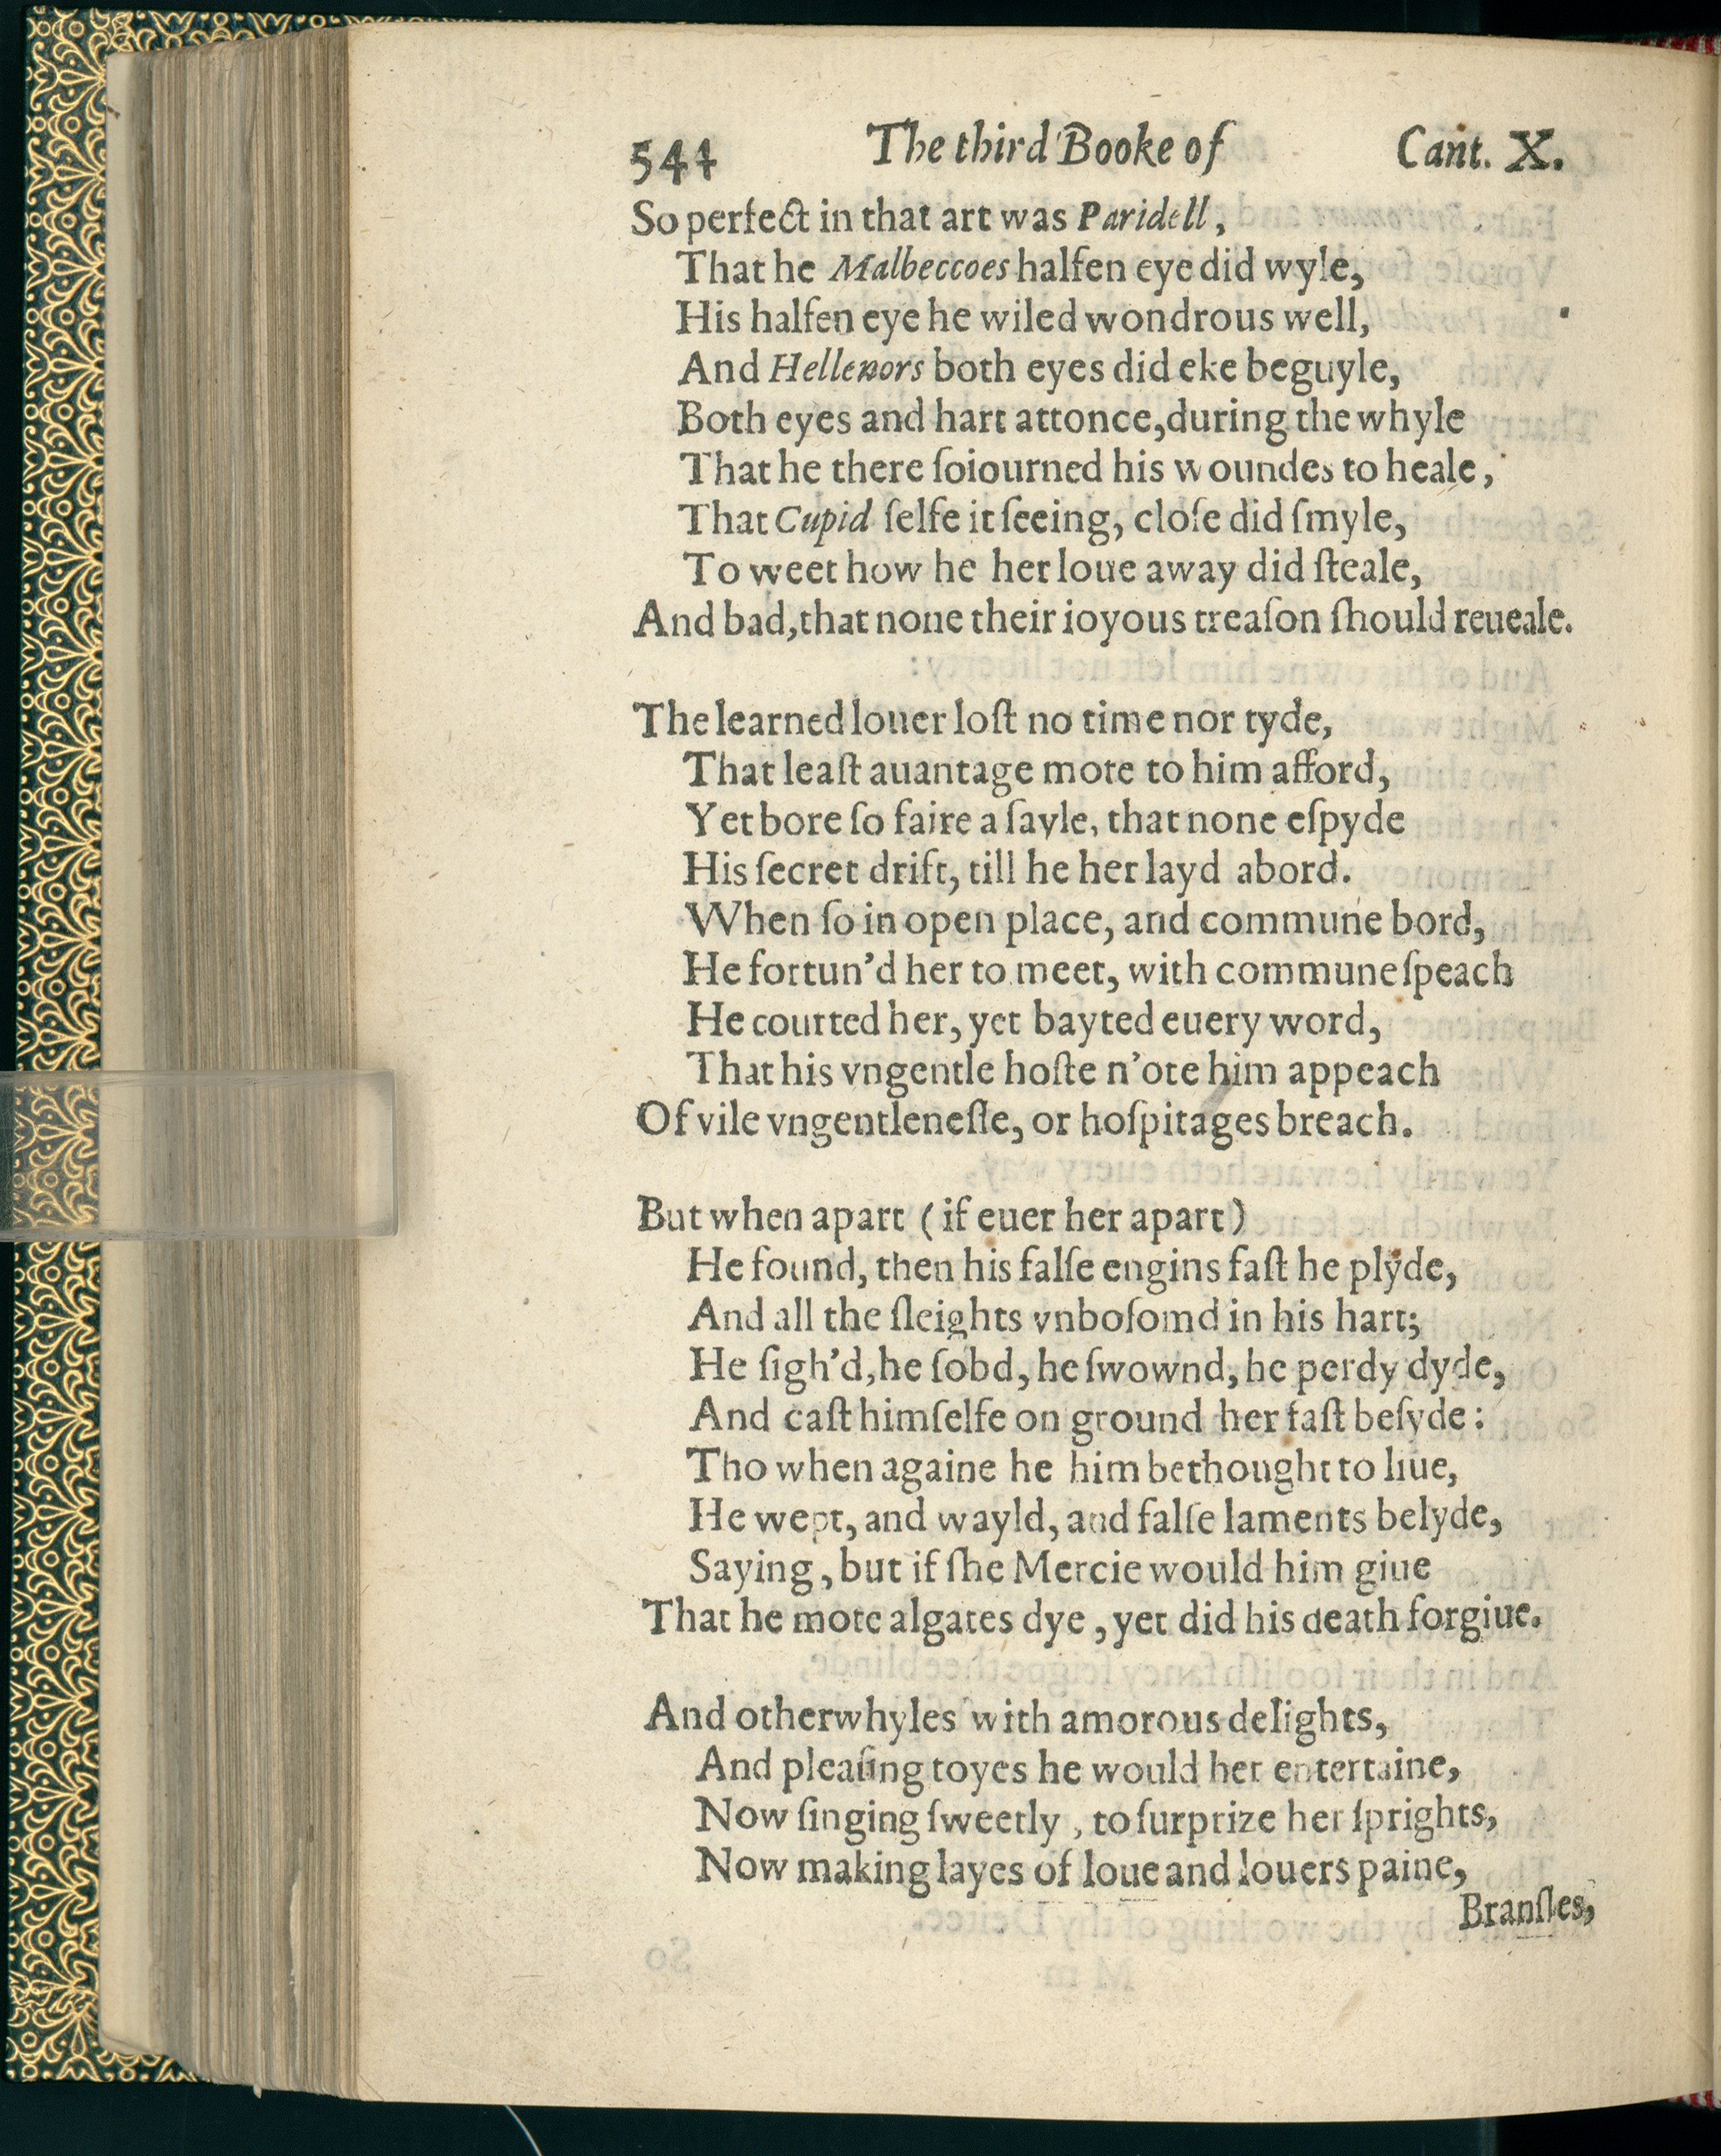 544 The third Booke of Cant. X.
So perfect in that art was Paridell,
That he Malbeccoes halfen eye did wyle,
His halfen eye he wiled wondrous well,
And Hellenors both eyes did eke beguyle,
Both eyes and hart attonce,during the whyle
That he there ſoiourned his woundes to heale,
That Cupid ſelfe it ſeeing, cloſe did ſmyle,
To weet how he her loue away did ſteale,
And bad,that none their ioyous treaſon ſhould reueale.
The learned louer loſt no time nor tyde,
That leaſt auantage mote to him afford,
Yet bore ſo faire a ſayle, that none eſpyde
His ſecret drift, till he her layd abord.
When ſo in open place, and commune bord,
He fortun'd her to meet, with commune ſpeach
He courted her, yet bayted euery word,
That his vngentle hoſte n'ote him appeach
Of vile vngentleneſſe, or hoſpitages breach.
But when apart (if euer her apart)
He found, then his falſe engins faſt he plyde,
And all the ſleights vnboſomd in his hart;
He ſigh'd,he ſobd, he ſwownd, he perdy dyde,
And caſt himſelfe on ground her faſt beſyde:
Tho when againe he him bethought to liue,
He wept, and wayld, and falſe laments belyde,
Saying, but if ſhe Mercie would him giue
That he mote algates dye, yet did his death forgiue.
And otherwhyles with amorous delights,
And pleaſing toyes he would her entertaine,
Now ſinging ſweetly, to ſurprize her ſprights,
Now making layes of loue and louers paine,
Branſles,